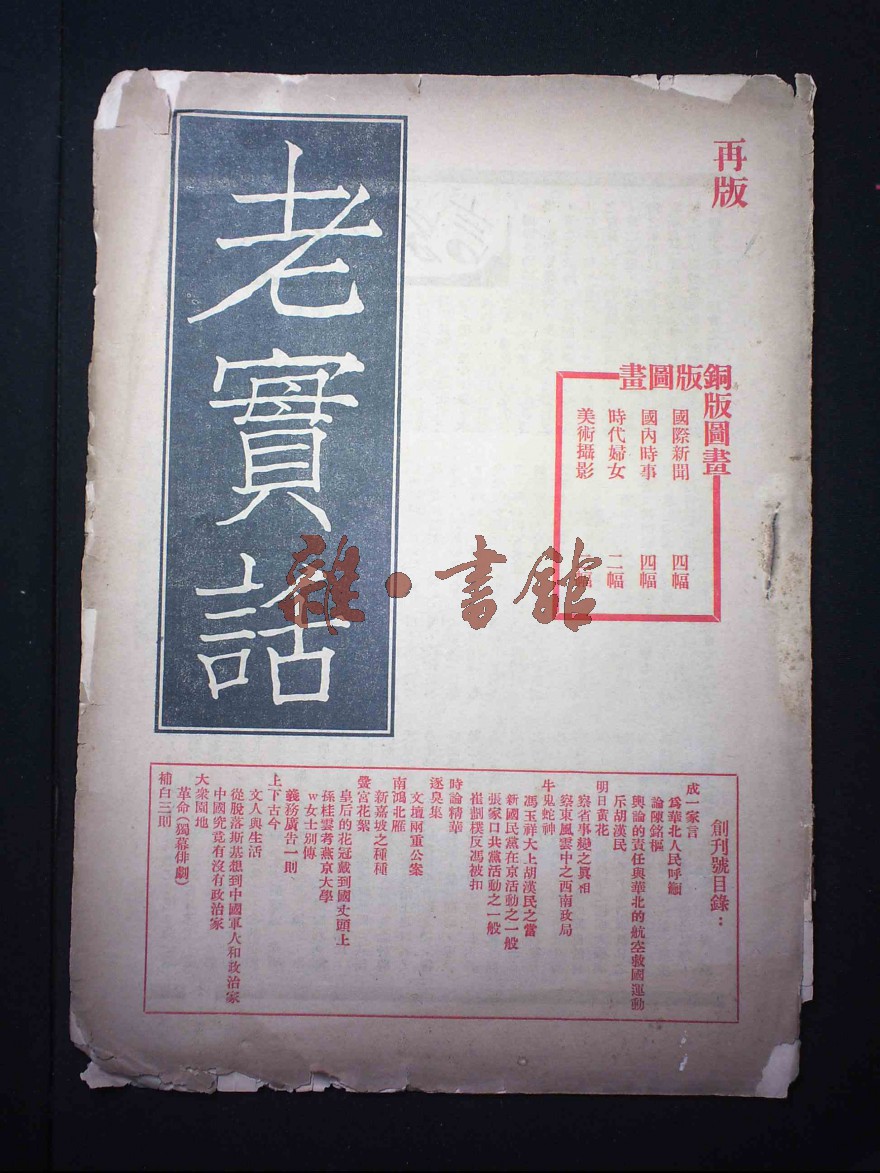 再版
老實話
銅版圖畫
銅版圖畫
國際新聞 四幅
國內時事 四幅
時代婦女 二幅
美術攝影 幅
雜·書館
創刊號目錄：
成一家言
爲華北人民呼籲
論陳銘樞
輿論的責任與華北的航空救國運動
斥胡漢民
明日黃花
察省事變之眞相
察東風雲中之西南政局
牛鬼蛇神
馮玉祥大上胡漢民之當
新國民黨在京活動之一般
張家口共黨活動之一般
崔劍樸反馮被扣
時論精華
逐臭集
文壇兩重公案
南鴻北雁
新嘉坡之種種
黌宮花絮
皇后的花冠戴到國丈頭上
孫桂雲考燕京大學
W女士別傳
義務廣告一則
上下古今
文人與生活
從脫落斯基想到中國軍人和政治家
中國究竟有沒有政治家
大衆園地
革命（獨幕俳劇）
補白三則